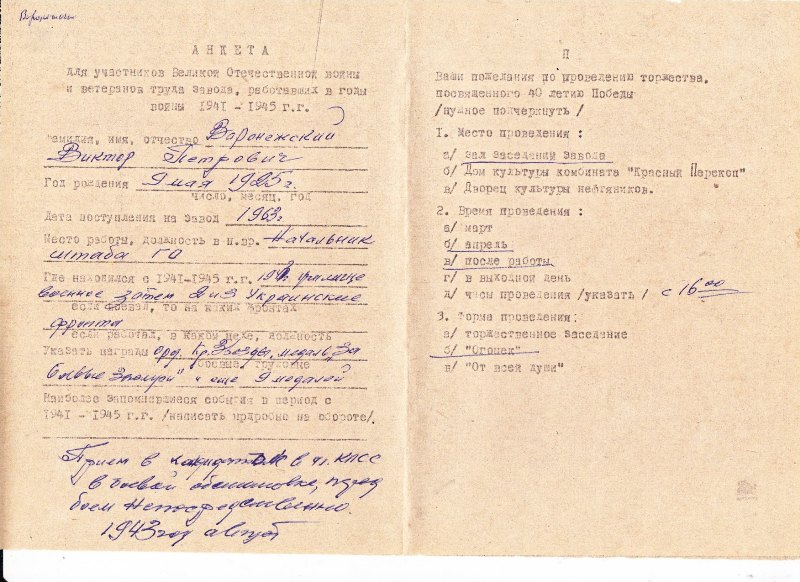 АНКЕТА
для участников Великой Отечественной войны
и ветеранов труда завода, работавших в годы
войны 1941 - 1945 г.г.
Фамилия, имя, отчество Воронежский
Виктор Петрович
Год рождения 9 мая 1925 г.
число, месяц, год
Дата поступления на завод 1963 г
Место работы, должность в н.вр. Начальник
штаба ГО
Где находился с 1941-1945 г.г. училище
военное затем 2 и 3 Украинские
если воевал, то на каких фронтах
фронта
если работал, в каком цехе, должность
Указать награды орд. Кр. Звезды, медаль "За
боевые, трудовые
боевые заслуги" и еще 9 медалей
Наиболее запомнившиеся события в период с
1941 - 1945 г.г. /написать подробно на обороте/.
Прием в кандидаты в чл. КПСС
в боевой обстановке, перед
боем непосредственно.
1943 год август
П
Ваши пожелания по проведению торжества,
посвященного 40 летию Победы
/нужное подчеркнуть/
1. Место проведения :
а/ зал заседаний завода
б/ Дом культуры комбината "Красный Перекоп"
в/ Дворец культуры нефтяников.
2. Время проведения :
а/ март
б/ апрель
в/ после работы
г/ в выходной день
д/ часы проведения /указать/ с 16 00
3. Форма проведения:
а/ торжественное заседание
б/ "Огонек"
в/ "От всей души"